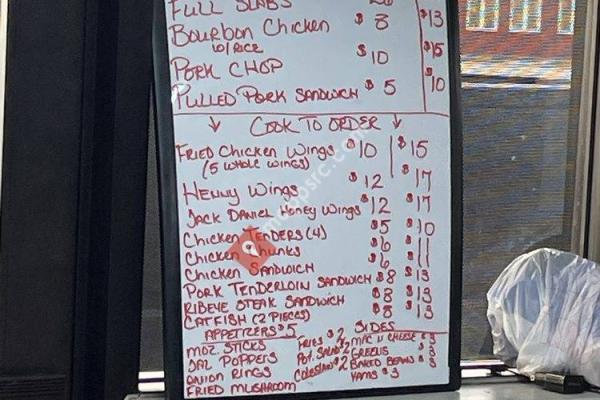 FULL SLABS $13
BOURBON CHICKEN $8 $15
W/RICE
PORK CHOP $10 $10
PULLED PORK SANDWICH $5
↓ COOK TO ORDER ↓
FRIED CHICKEN WINGS $10 $15
(5 WHOLE WINGS)
HENNY WINGS $12 $17
JACK DANIEL HONEY WINGS $12 $17
CHICKEN TENDERS (4) $5 $10
CHICKEN CHUNKS $6 $11
CHICKEN SANDWICH $6 $11
PORK TENDERLOIN SANDWICH $8 $13
RIBEYE STEAK SANDWICH $8 $13
CATFISH (2 PIECES) $8 $13
APPETZERS $5
MOZ. STICKS
JAL POPPERS
ONION RINGS
FRIED MUSHROOM
SIDES
FRIES $2
POT. SALAD $2
COLESLAW $2
MAC N CHEESE $3
GREENS $3
BAKED BEANS $3
YAMS $3